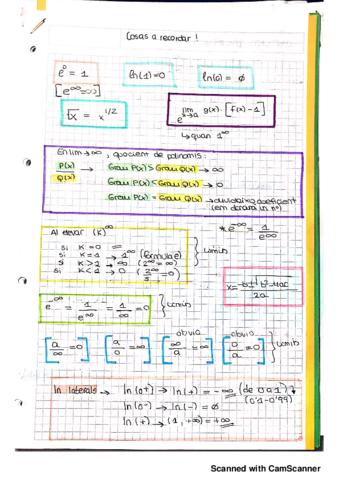 Cosas a recordar!
e⁰ = 1
ln(1)=0
ln(0) = ∅
[e^∞=∞]
√x = x^1/2
e^lim x→a g(x)·[f(x)-1]
↳ quan 1^∞
En lim→∞, quocient de polinomis:
P(x) → Grau P(x) > Grau Q(x) → ∞
Q(x) Grau P(x) < Grau Q(x) → 0
Grau P(x) = Grau Q(x) →
(em donarà un nº)
Al elevar (K)^∞
* e^-∞ = 1/e^∞
si K=0
si K=1 → 1^∞ (fórmula e)
si K>1 → ∞ (2^∞ = ∞)
si K<1 → 0
límits
e^-∞ = 1/e^∞ = 1/∞ = 0
límits
obvio
obvio
[a/∞ = 0] [a/0 = ∞] [∞/a = ∞] [0/a = 0] límits
ln laterals → ln(0+) → ln(+) = -∞ (de 0 a 1)
(0'1-0'99)
ln(0-) → ln(-) = ∅
ln(+) → (1, +∞) = +∞
Scanned with CamScanner